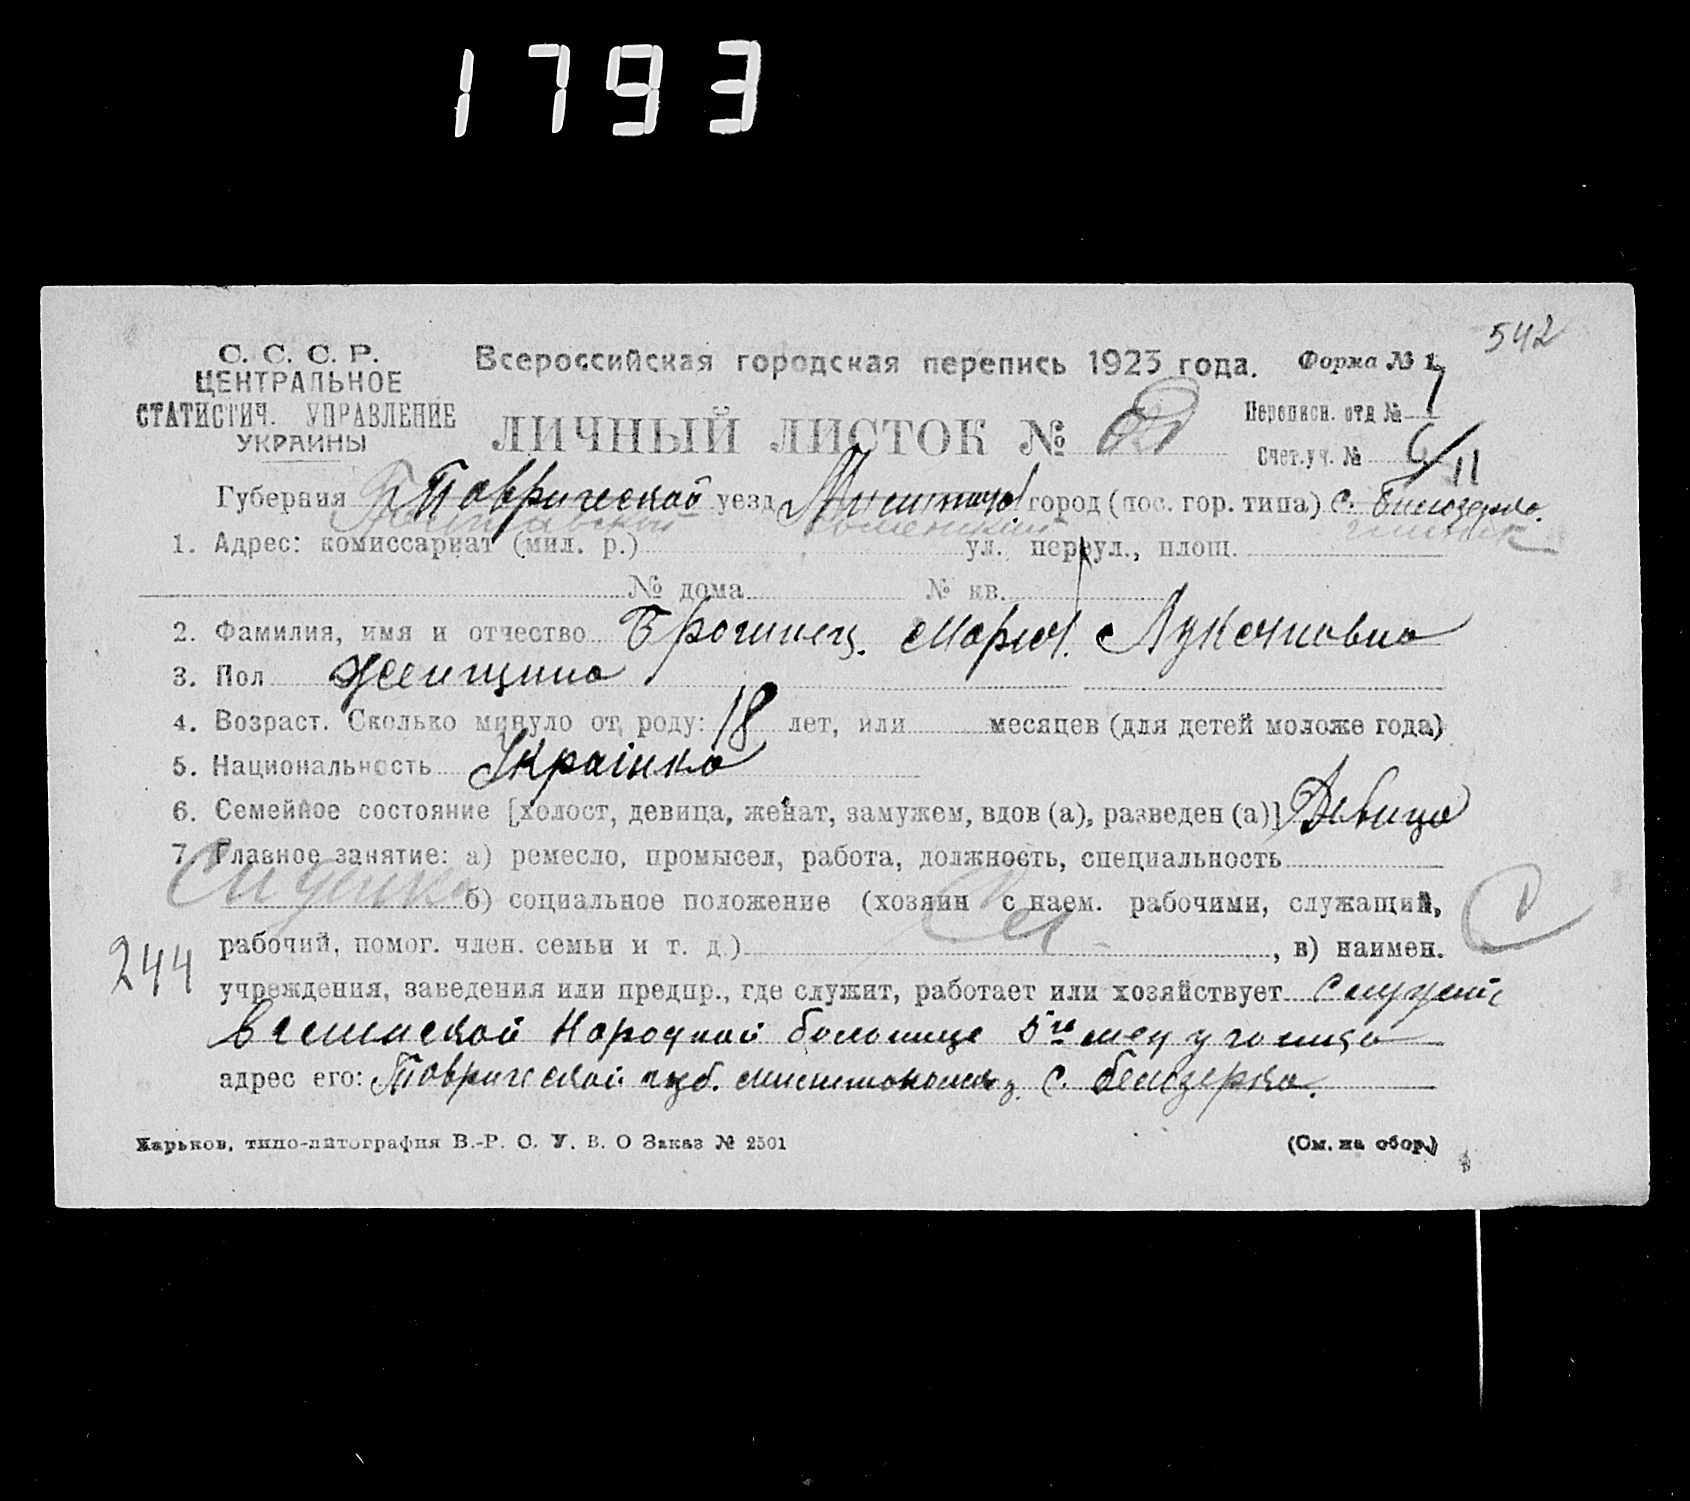 1793
542
С. С. С. Р.
ЦЕНТРАЛЬНОЕ
СТАТИСТИЧ. УПРАВЛЕНИЕ
УКРАИНЫ
Всероссийская городская перепись 1923 года. Форма № 1
ЛИЧНЫЙ ЛИСТОК №
Переписн. отд №
Счет.уч. № 11
Губерния Таврической уезд город (пос. гор. типа) с.
1. Адрес: комиссариат (мил. р.) ул. переул., площ.
№ дома № кв.
2. Фамилия, имя и отчество Мария
3. Пол Женщина
4. Возраст. Сколько минуло от роду: 18 лет, или месяцев (для детей моложе года)
5. Национальность Украінка
6. Семейное состояние [холост, девица, женат, замужем, вдов (а), разведен (а)] Девица
7. Главное занятие: а) ремесло, промысел, работа, должность, специальность
Сиделка б) социальное положение (хозяин с наем. рабочими, служащий, С
244 рабочий, помог. член. семьи и т. д.) , в) наимен.
учреждения, заведения или предпр., где служит, работает или хозяйствует Служит
в Народной больнице 5го мед участка
адрес его: Таврической губ. с. белозерка.
Харьков, типо-литография В.-Р. С. У. В. О Заказ № 2501 (См. на обор.)